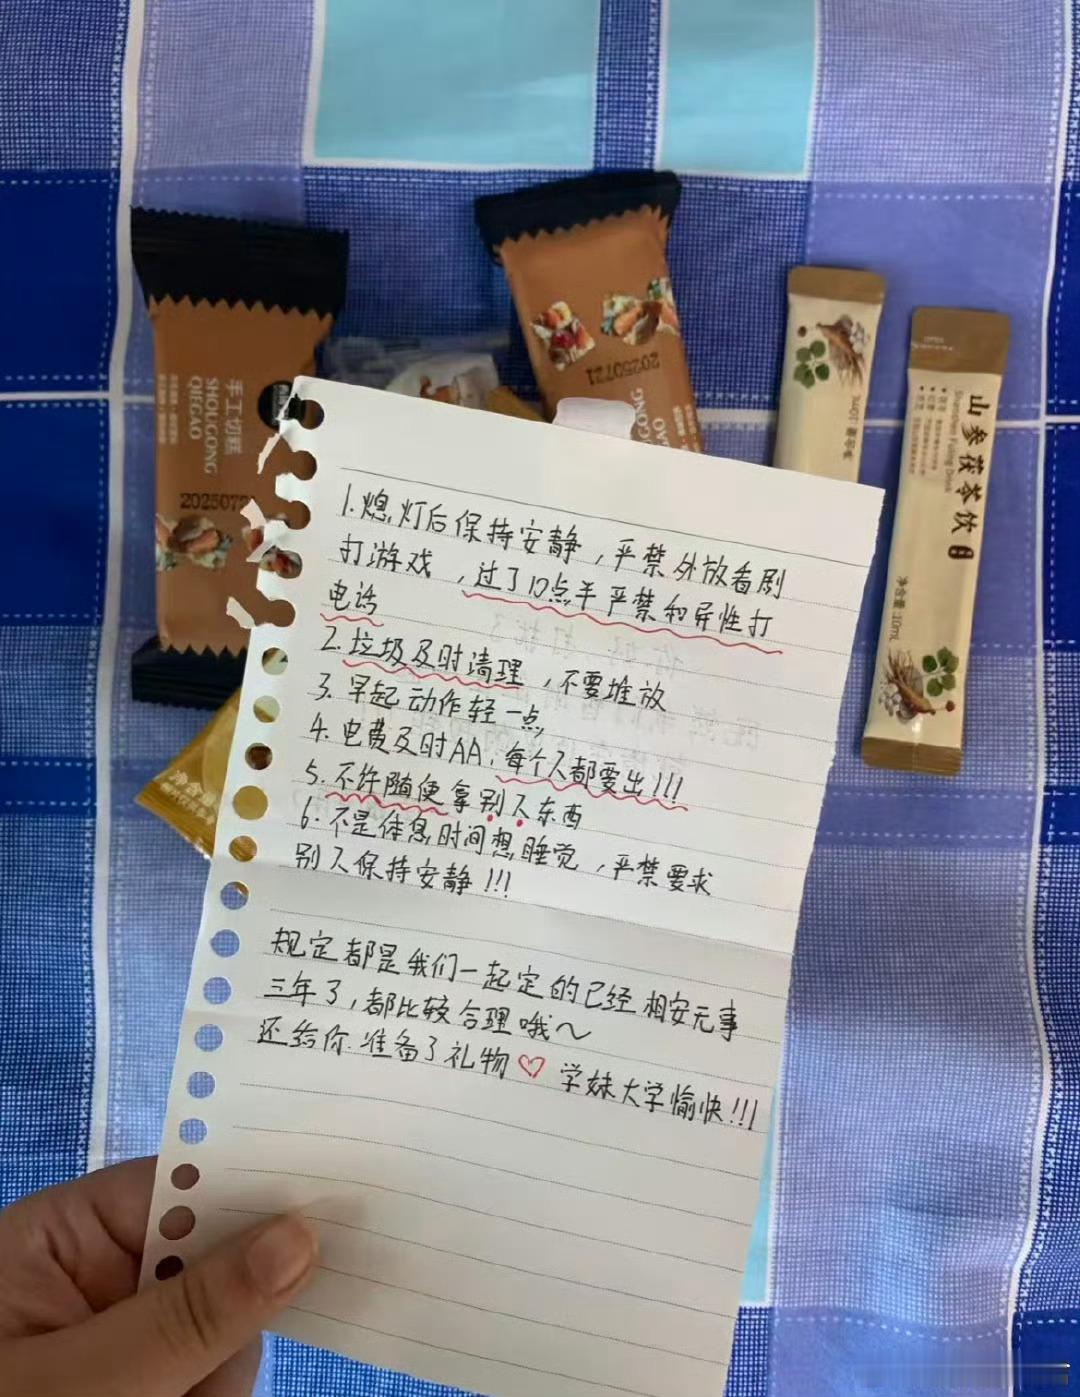 手工切糕
SHOUGONG
QIEGAO
20250721
20250721
SHOUGONG
QIEGAO
山参茯苓饮
Shanshen Fuling Drink
净含量:10ml
1.熄灯后保持安静，严禁外放看剧
打游戏，过了10点半严禁和异性打
电话
2.垃圾及时清理，不要堆放
3.早起动作轻一点
4.电费及时AA，每个人都要出!!!
5.不许随便拿别人东西
6.不是休息时间想睡觉，严禁要求
别人保持安静!!!
规定都是我们一起定的已经相安无事
三年了，都比较合理哦～
还给你准备了礼物♡ 学妹大学愉快!!!